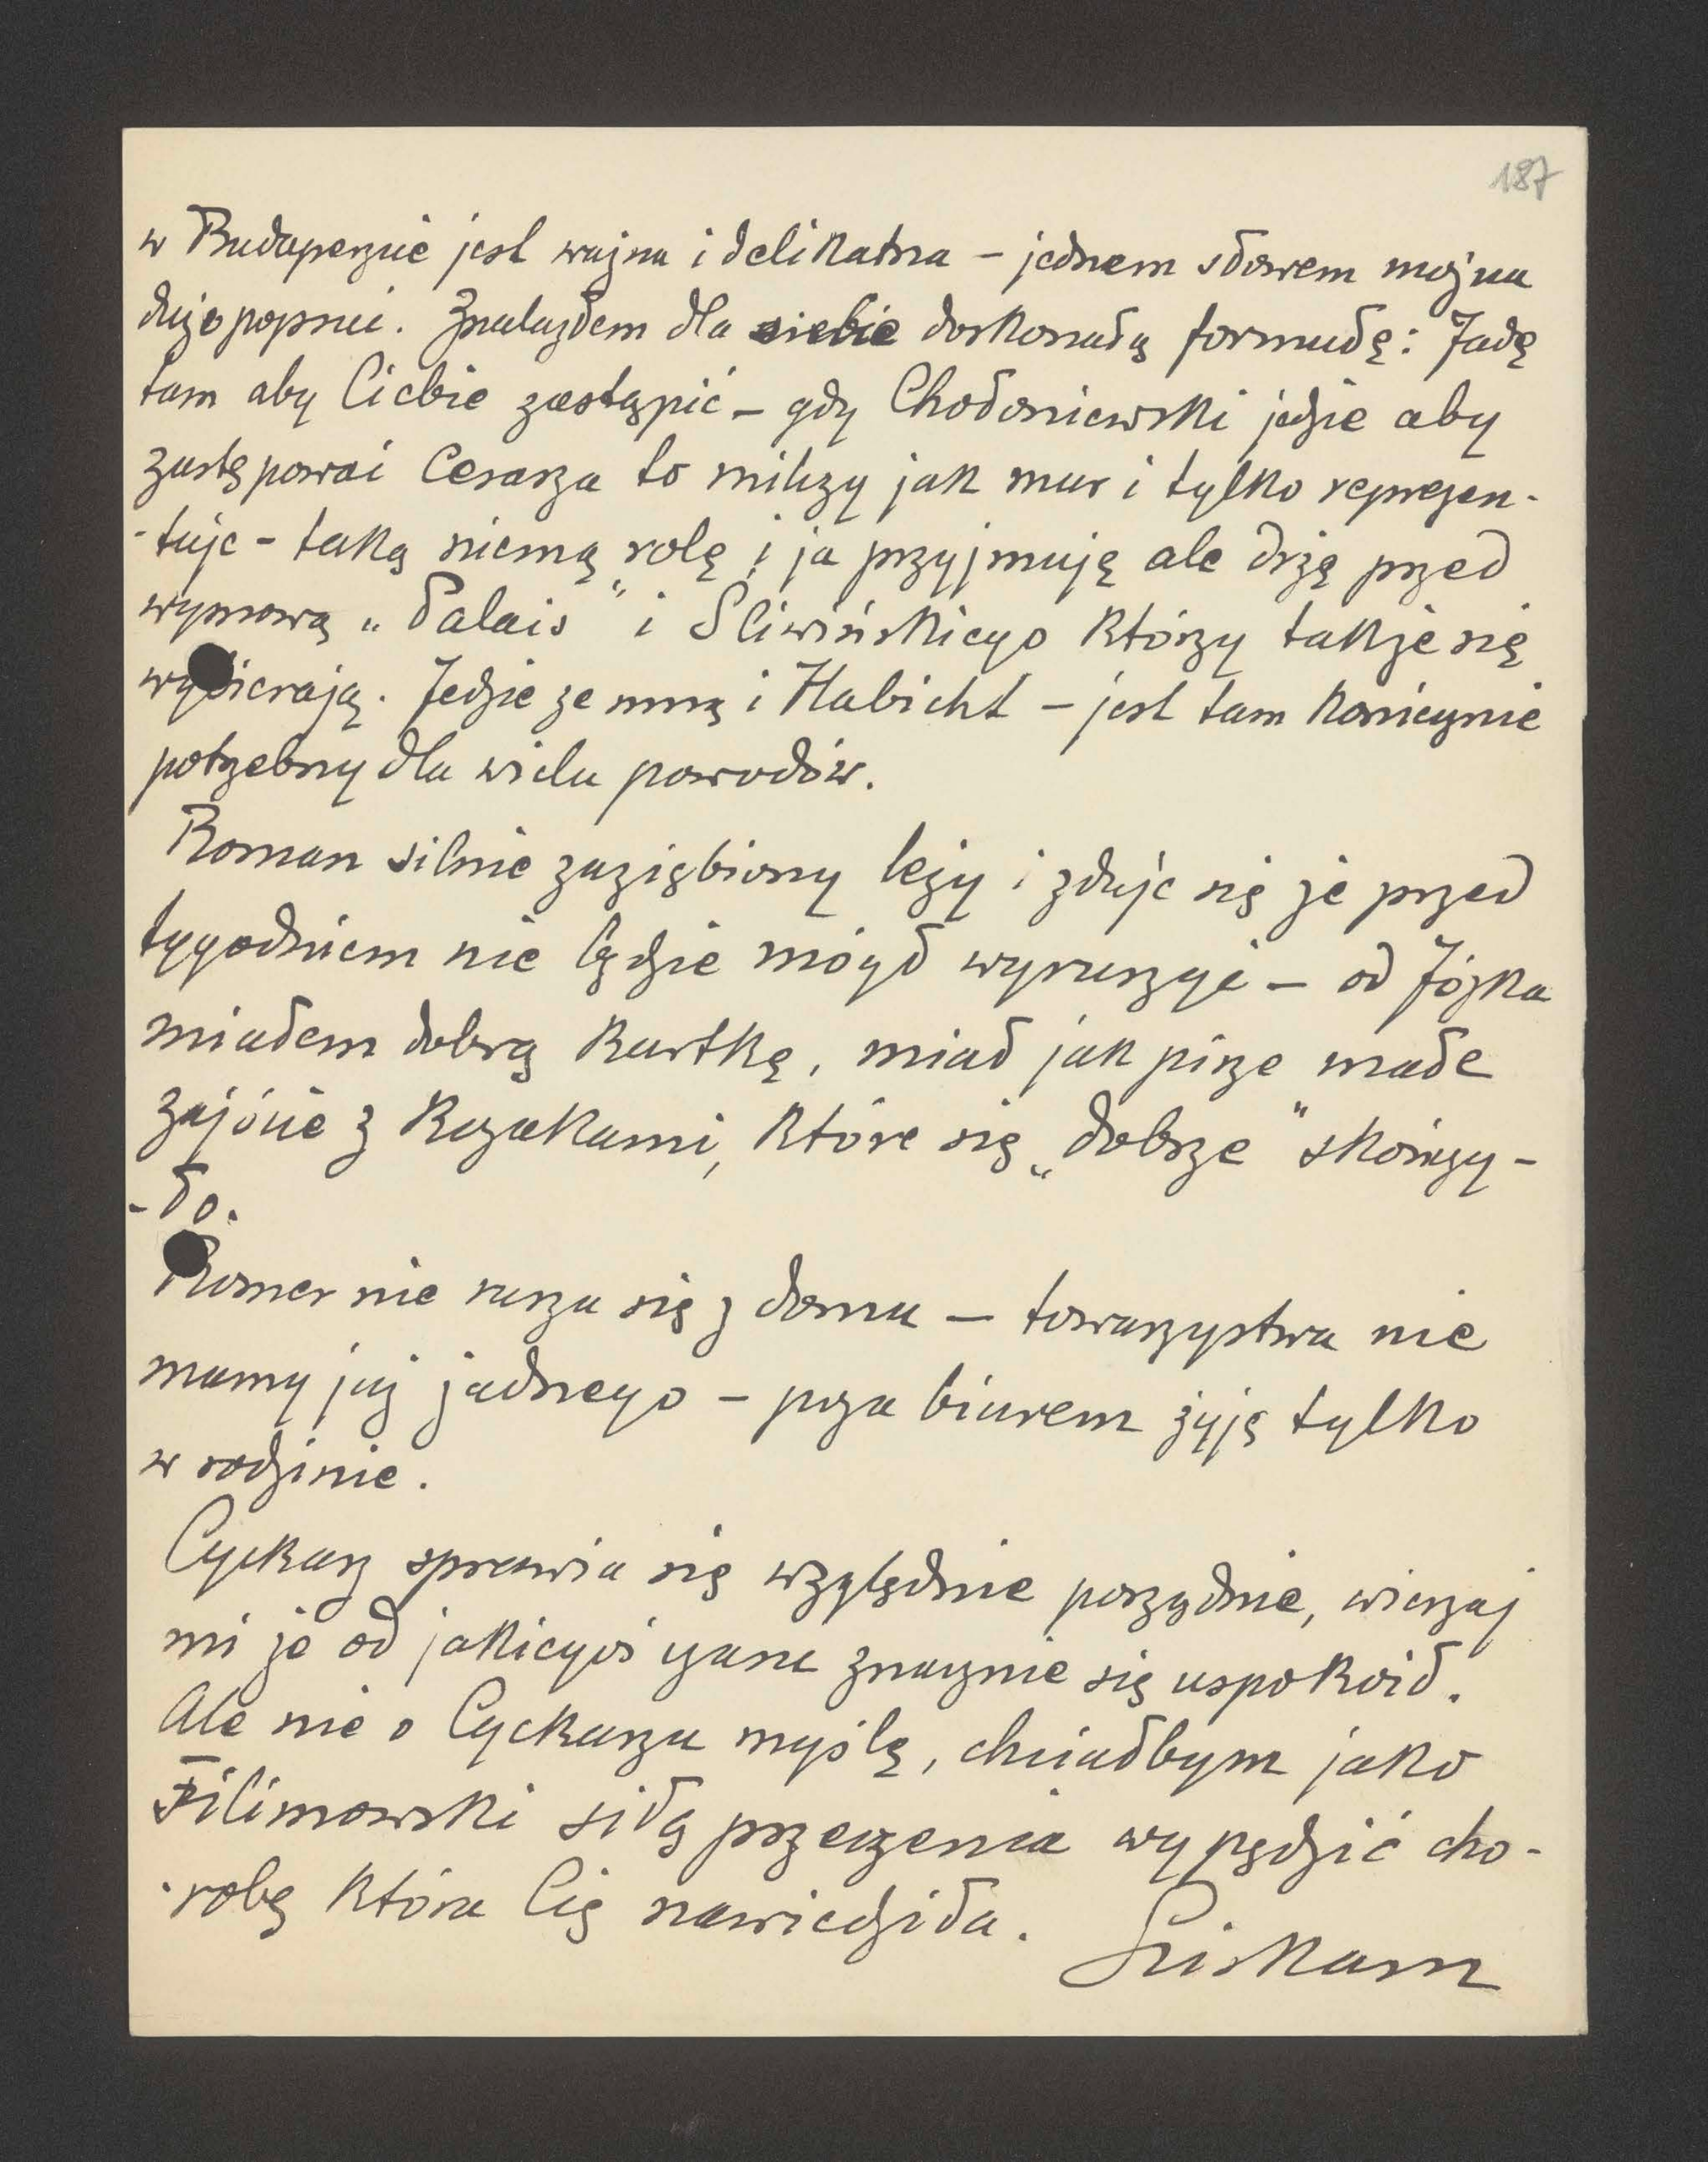 187
w Budapeszcie jest ważna i delikatna – jednem słowem można
dużo popsuć. Znalazłem dla siebie doskonałą formułę: Jadę
tam aby Ciebie zastąpić – gdy Chołoniewski jedzie aby
zastępować Cesarza to milczy jak mur i tylko reprezen-
-tuje – taką niemą rolę i ja przyjmuję ale drżę przed
wymową „Palais" i Śliwińskiego którzy także się
wybierają. Jedzie ze mną i Habicht – jest tam koniecznie
potrzebny dla wielu powodów.
Roman silnie zaziębiony leży i zdaje się że przed
tygodniem nie będzie mógł wyruszyć – od Józka
miałem dobrą kartkę, miał jak pisze małe
zajście z kozakami, które się „dobrze" skończy-
-ło.
Romer nie rusza się z domu – towarzystwa nie
mamy już żadnego – poza biurem żyję tylko
w rodzinie.
Cyckasz sprawia się względnie porządnie, wierzaj
mi że od jakiegoś czasu znacznie się uspokoił.
Ale nie o Cyckaszu myślę, chciałbym jako
Filimowski siłą przeczenia wypędzić cho-
-robę która Cię nawiedziła.